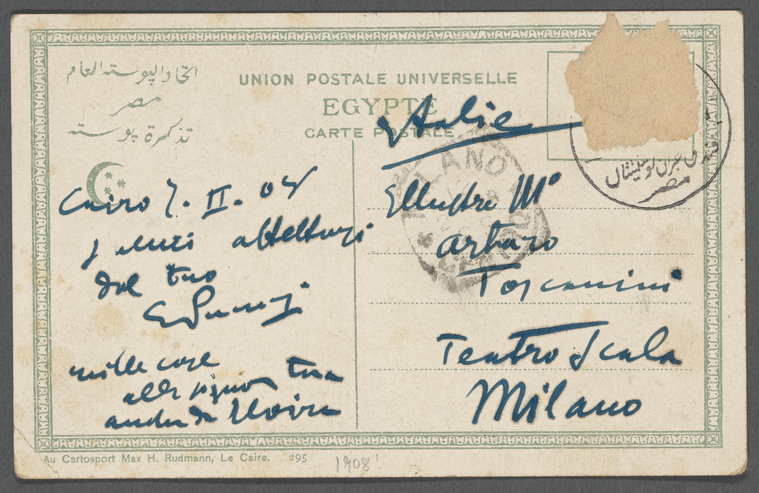 اتحاد البوسته العام
مصر
تذكرة بوسته
UNION POSTALE UNIVERSELLE
EGYPTE
CARTE POSTALE
Italie
مصر
MILANO
Cairo 7. II. 08
dal tuo
mille cose
alla signora tua
anche da Elvira
Illustre Mº
Arturo
Toscanini
Teatro Scala
Milano
Au Cartosport Max H. Rudmann, Le Caire. 295
1908!